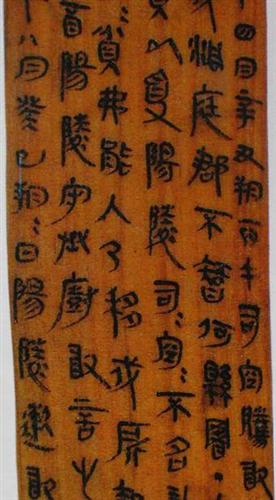 年四月辛丑朔丙午司空騰敢
戍洞庭郡不智何縣署·
責以受陽陵司=空=不名計
=貧弗能入乃移戍所
酉陽陵守丞廚敢言之
年八月癸巳朔=日陽陵遬敢